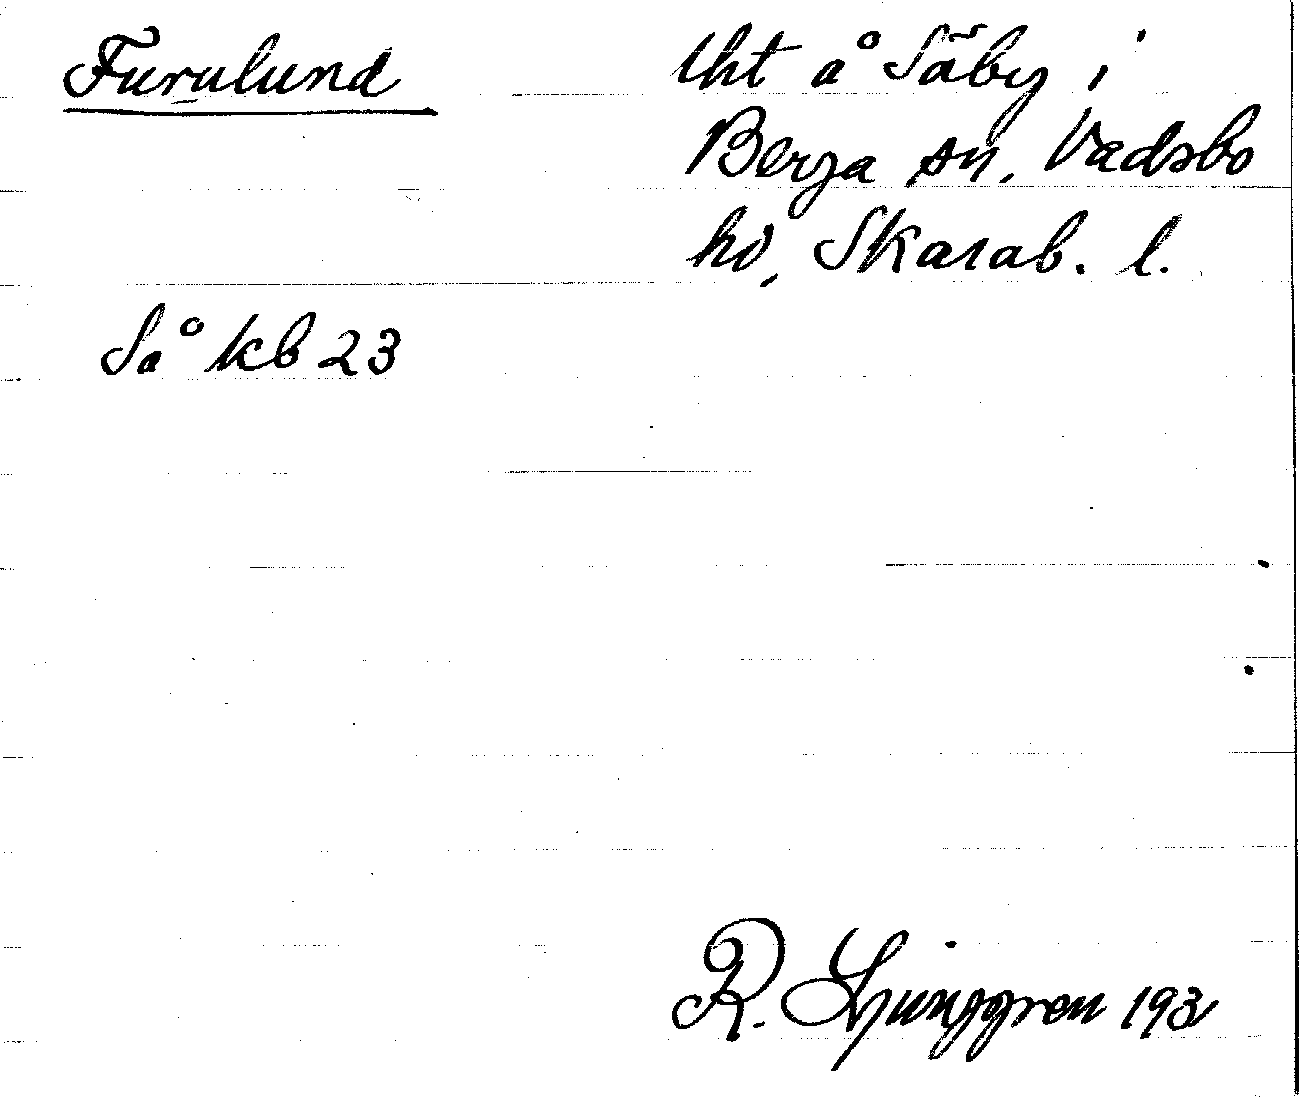 Furulund
lht å Säby i
Berga sn, Vadsbo
hd, Skarab. l.
Så kb 23
R. Ljunggren 193